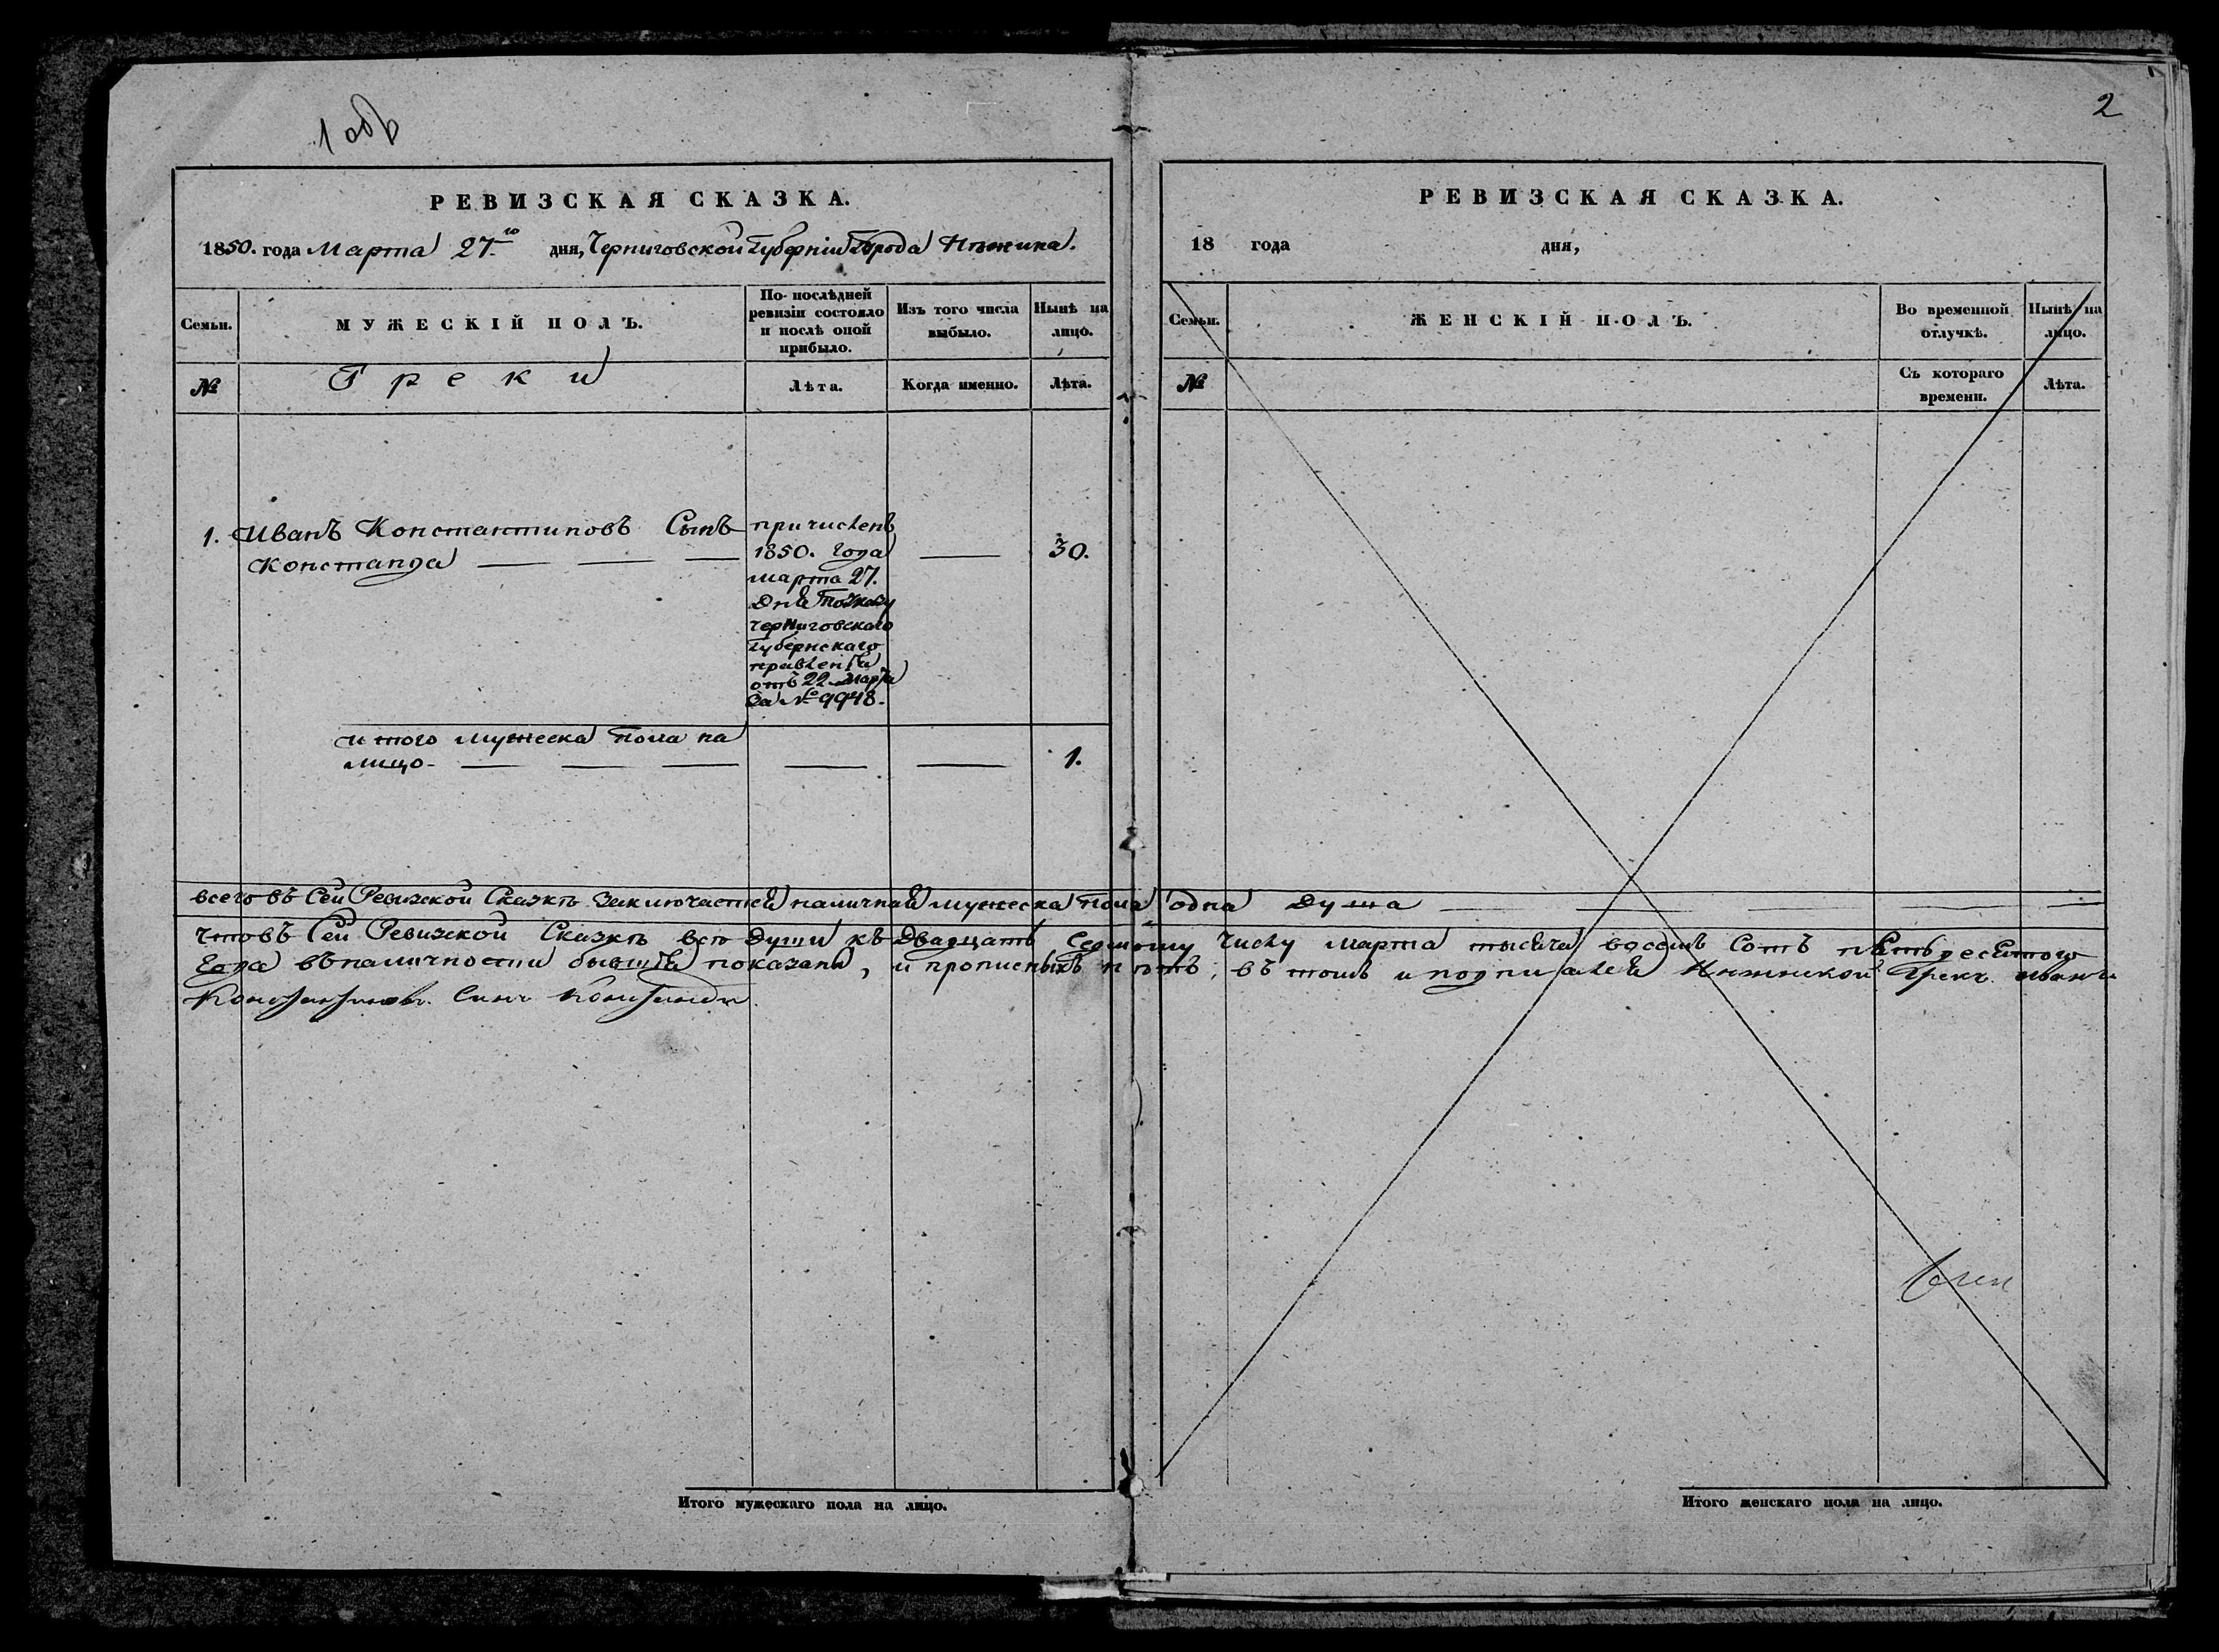 1 об
2
РЕВИЗСКАЯ СКАЗКА.
1850. года Марта 27го дня, Черниговской Губерніи Города Нѣжина.
Семьи.
МУЖЕСКІЙ ПОЛЪ.
По послѣдней
ревизіи состояло
и послѣ оной
прибыло.
Изъ того числа
выбыло.
Нынѣ на
лицо.
№
Греки
Лѣта.
Когда именно.
Лѣта.
1. Иванъ Константиновъ Сынъ
Констанда
причисленъ
1850. Года
марта 27.
Дня
Черниговскаго
Губернскаго
правленія
отъ 22 Марта
За № 9948.
30.
итого мужеска пола на
лицо
1.
РЕВИЗСКАЯ СКАЗКА.
18 года дня,
Семьи.
ЖЕНСКІЙ ПОЛЪ.
Во временной
отлучкѣ.
Нынѣ на
лицо.
№
Съ котораго
времени.
Лѣта.
всего въ Сей Ревизской Сказкѣ заключается наличная мужеска пола одна Душа
что въ Сей Ревизской Сказкѣ всѣ Души къ Двадцать Седьмому Числу Марта тысяча восемь Сотъ пятьдесятого
Года въ наличности бывшія показаны, и прописныхъ нѣтъ, въ томъ и подписался Нѣжинской Грекъ Иванъ
Константиновъ Синъ Констанди.
Итого мужескаго пола на лицо.
Итого женскаго пола на лицо.